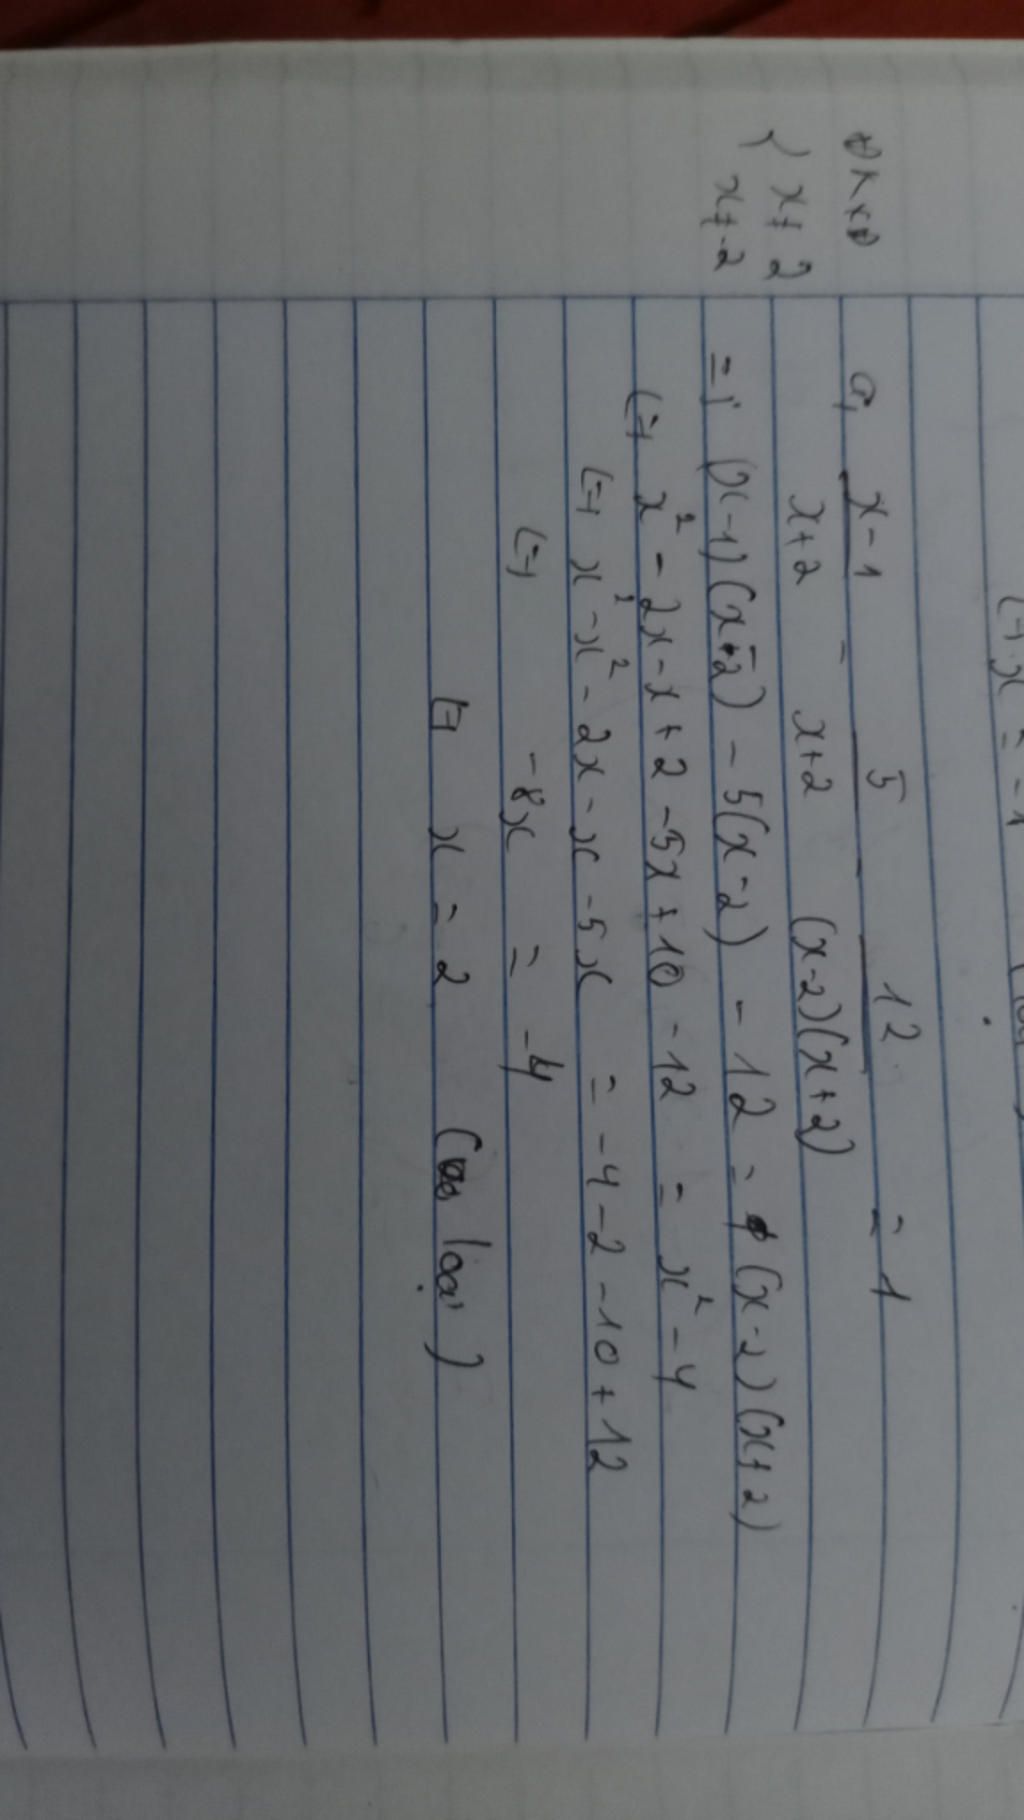 (=) x = -1
ĐKXĐ
{ x ≠ 2
x ≠ -2
a, x-1 / x+2 - 5 / x+2 - 12 / (x-2)(x+2) = 1
=> (x-1)(x-2) - 5(x-2) - 12 = 1(x-2)(x+2)
(=) x² - 2x - x + 2 - 5x + 10 - 12 = x² - 4
(=) x² - x² - 2x - x - 5x = -4 - 2 - 10 + 12
(=) -8x = -4
(=) x = 2 (loại)